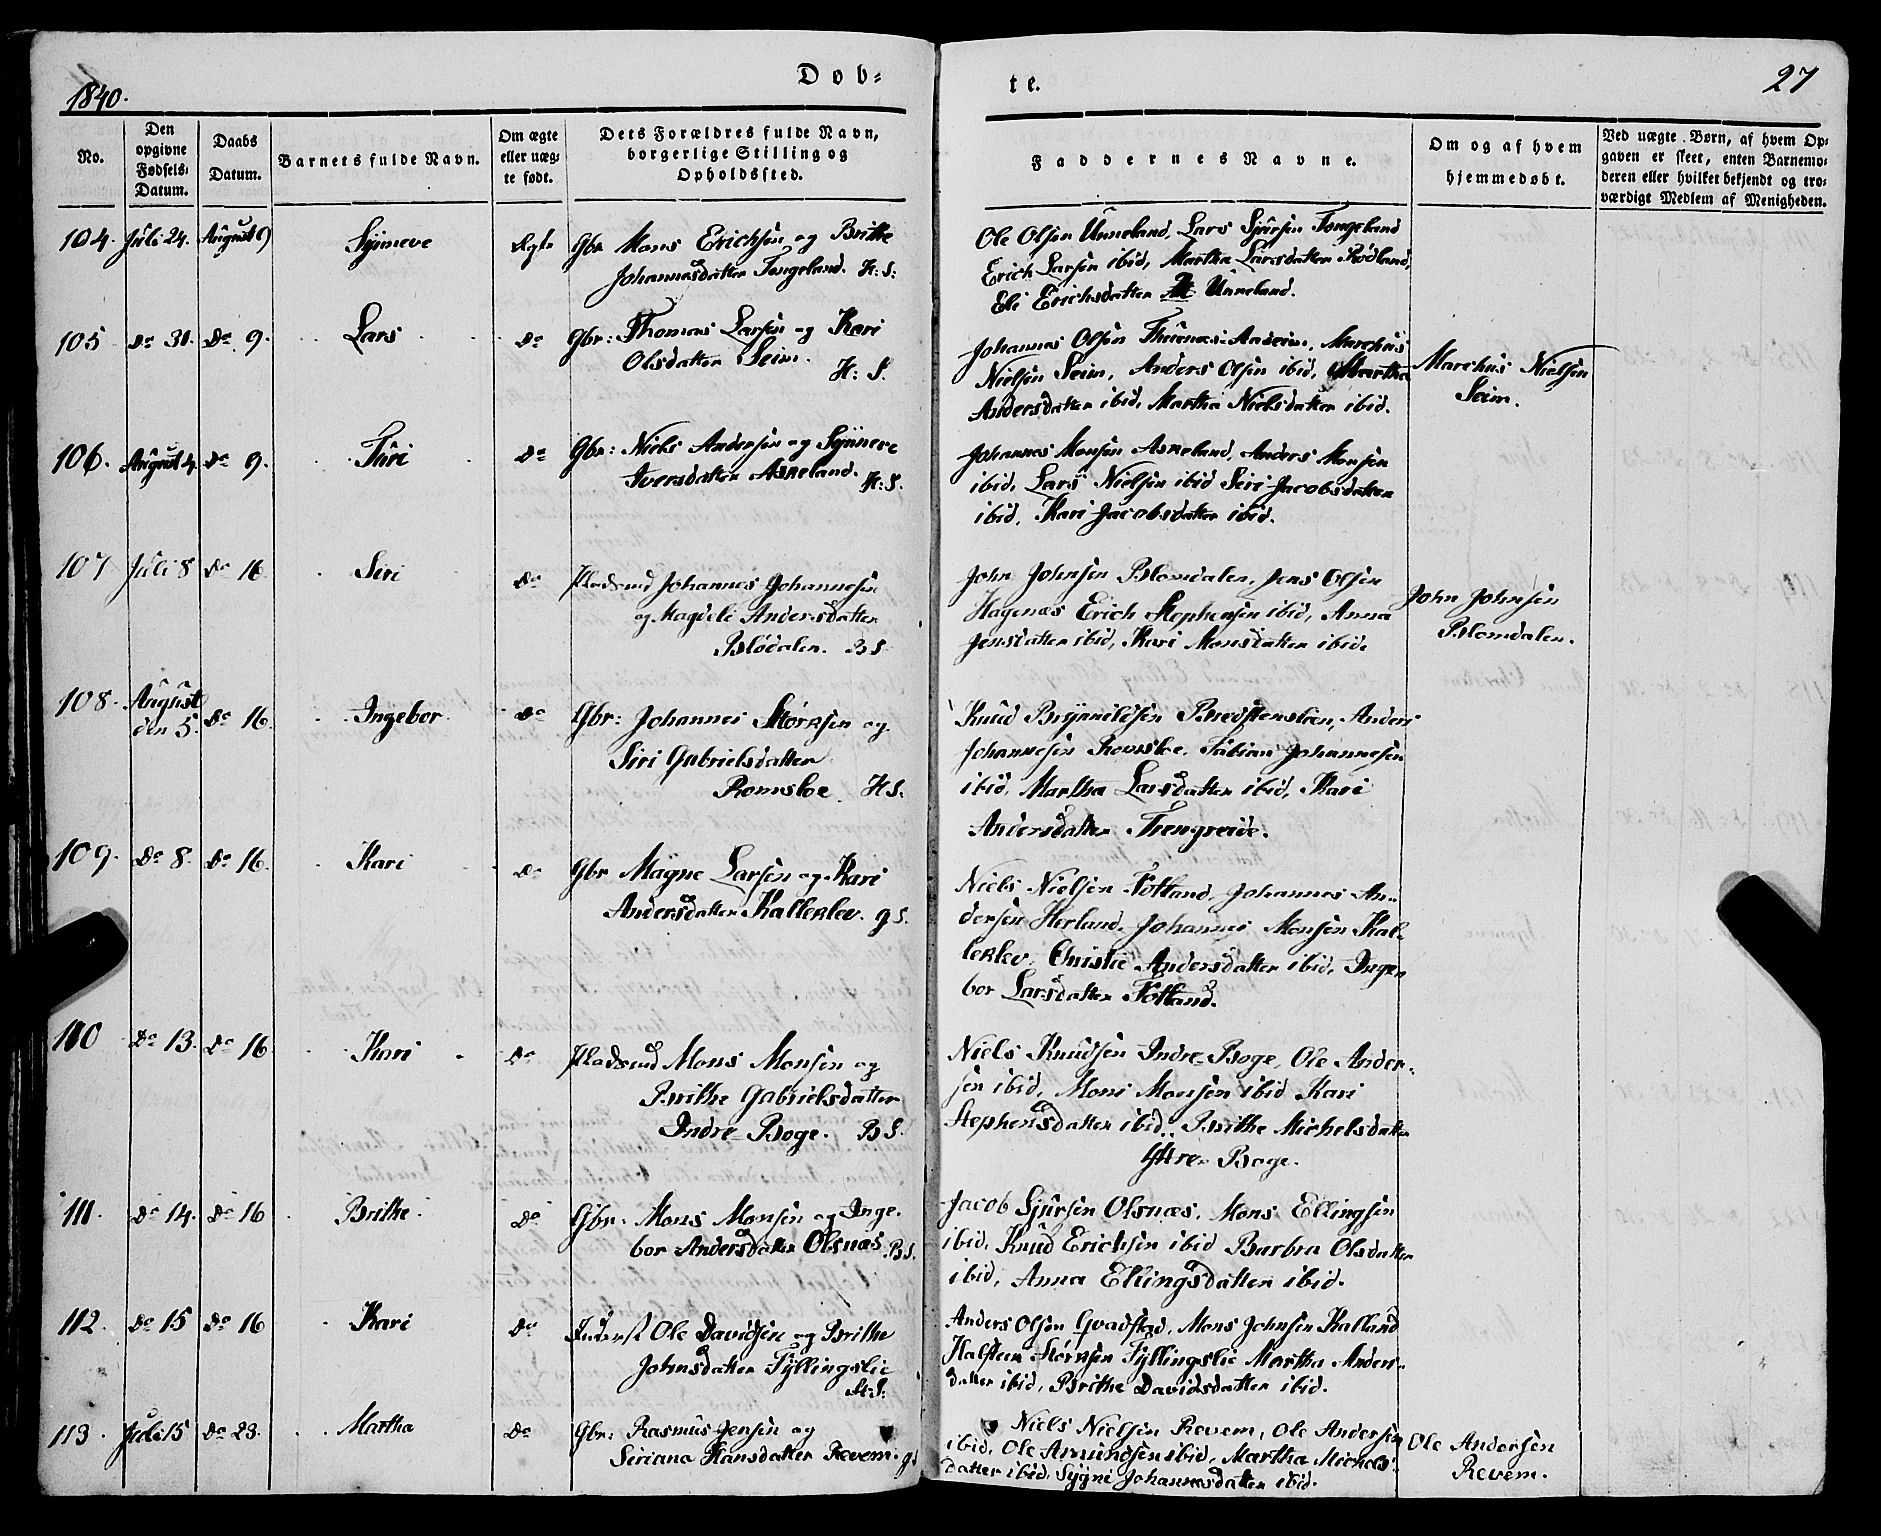 1840.
Døb-
te.
27
No.
Den opgivne Fødsels-Datum.
Daabs Datum.
Barnets fulde Navn.
Om ægte eller uæg-te født.
Dets Forældres fulde Navn, borgerlige Stilling og Opholdssted.
Faddernes Navne.
Om og af hvem hjemmedøbt.
Ved uægte Børn, af hvem Op-gaven er skeet, enten Barnemo-deren eller hvilket bekjendt og tro-værdigt Medlem af Menigheden.
104. Juli 24. August 9 Synneve Ægte Gbr Mons Erichsen og Brithe
Johannesdatter Tongeland. H: S:
Ole Olsen Unneland, Lars Sjursen Tongeland
Erich Larsen ibid, Martha Larsdatter Rødland,
Eli Erichsdatter Unneland.
105 Do 31. Do 9. Lars Do Gbr: Thomas Larsen og Kari
Olsdatter Seim.
H: S.
Johannes Olsen Marchus
Nielsen Seim, Anders Olsen ibid, Martha
Andersdatter ibid, Martha Nielsdatter ibid.
Marchus Nielsen
Seim.
106. August 4. Do 9. Turi Do Gbr: Niels Andersen og Synneve
Iversdatter Asneland. H: S.
Johannes Monsen Asneland, Anders Monsen
ibid, Lars Nielsen ibid Siri Jacobsdatter
ibid, Kari Jacobsdatter ibid.
107 Juli 8 Do 16 Siri Do Pladsmd Johannes Johannesen
og Magdeli Andersdatter
Blødalen. B S
John Johnsen Blomdalen, Jens Olsen
Hagenæs Erich Stephensen ibid, Anna
Jensdatter ibid, Kari Monsdatter ibid.
John Johnsen
Blomdalen.
108. August
den 5. Do 16. Ingebor Do Gbr: Johannes Størksen og
Siri Gabrielsdatter
Romsloe. H S.
Knud Brynnildsen Bredsteenslien, Anders
Johannesen Romsloe, Fabian Johannesen
ibid, Martha Larsdatter ibid, Kari
Andersdatter Trengreide.
109. Do 8. Do 16. Kari Do Gbr Magne Larsen og Kari
Andersdatter Kalleklev. g S.
Niels Nielsen Totland, Johannes An-
dersen Herland, Johannes Monsen Kal-
leklev, Christie Andersdatter ibid, Inge-
bor Larsdatter Totland.
110 Do 13. Do 16 Kari Do Pladsmd Mons Monsen og
Brithe Gabrielsdatter
Indre-Boge. B S.
Niels Knudsen Indre-Boge, Ole Ander-
sen ibid, Mons Monsen ibid Kari
Stephensdatter ibid, Brithe Michelsdatter
Yttre-Boge.
111. Do 14. Do 16 Brithe Do Gbr. Mons Monsen og Inge-
bor Andersdatter Olsnæs. B S.
Jacob Sjursen Olsnæs, Mons Ellingsen
ibid, Knud Erichsen ibid Barbra Olsdatter
ibid, Anna Ellingsdatter ibid.
112. Do 15 Do 16 Kari Do Ole Davidsen og Brithe
Johnsdatter Fyllingslie
H: S:
Anders Olsen Qvadstad, Mons Johnsen Kalland
Halsteen Størksen Fyllingslie Martha Anders-
datter ibid, Brithe Davidsdatter ibid.
113. Juli 15 Do 23. Martha Do Gbr: Rasmus Jensen og
Siriana Hansdatter Revem. g S
Niels Nielsen Revem, Ole Andersen
ibid, Ole Amundsen ibid, Martha Michels-
datter ibid, Sygni Johannesdatter ibid.
Ole Andersen
Revem.